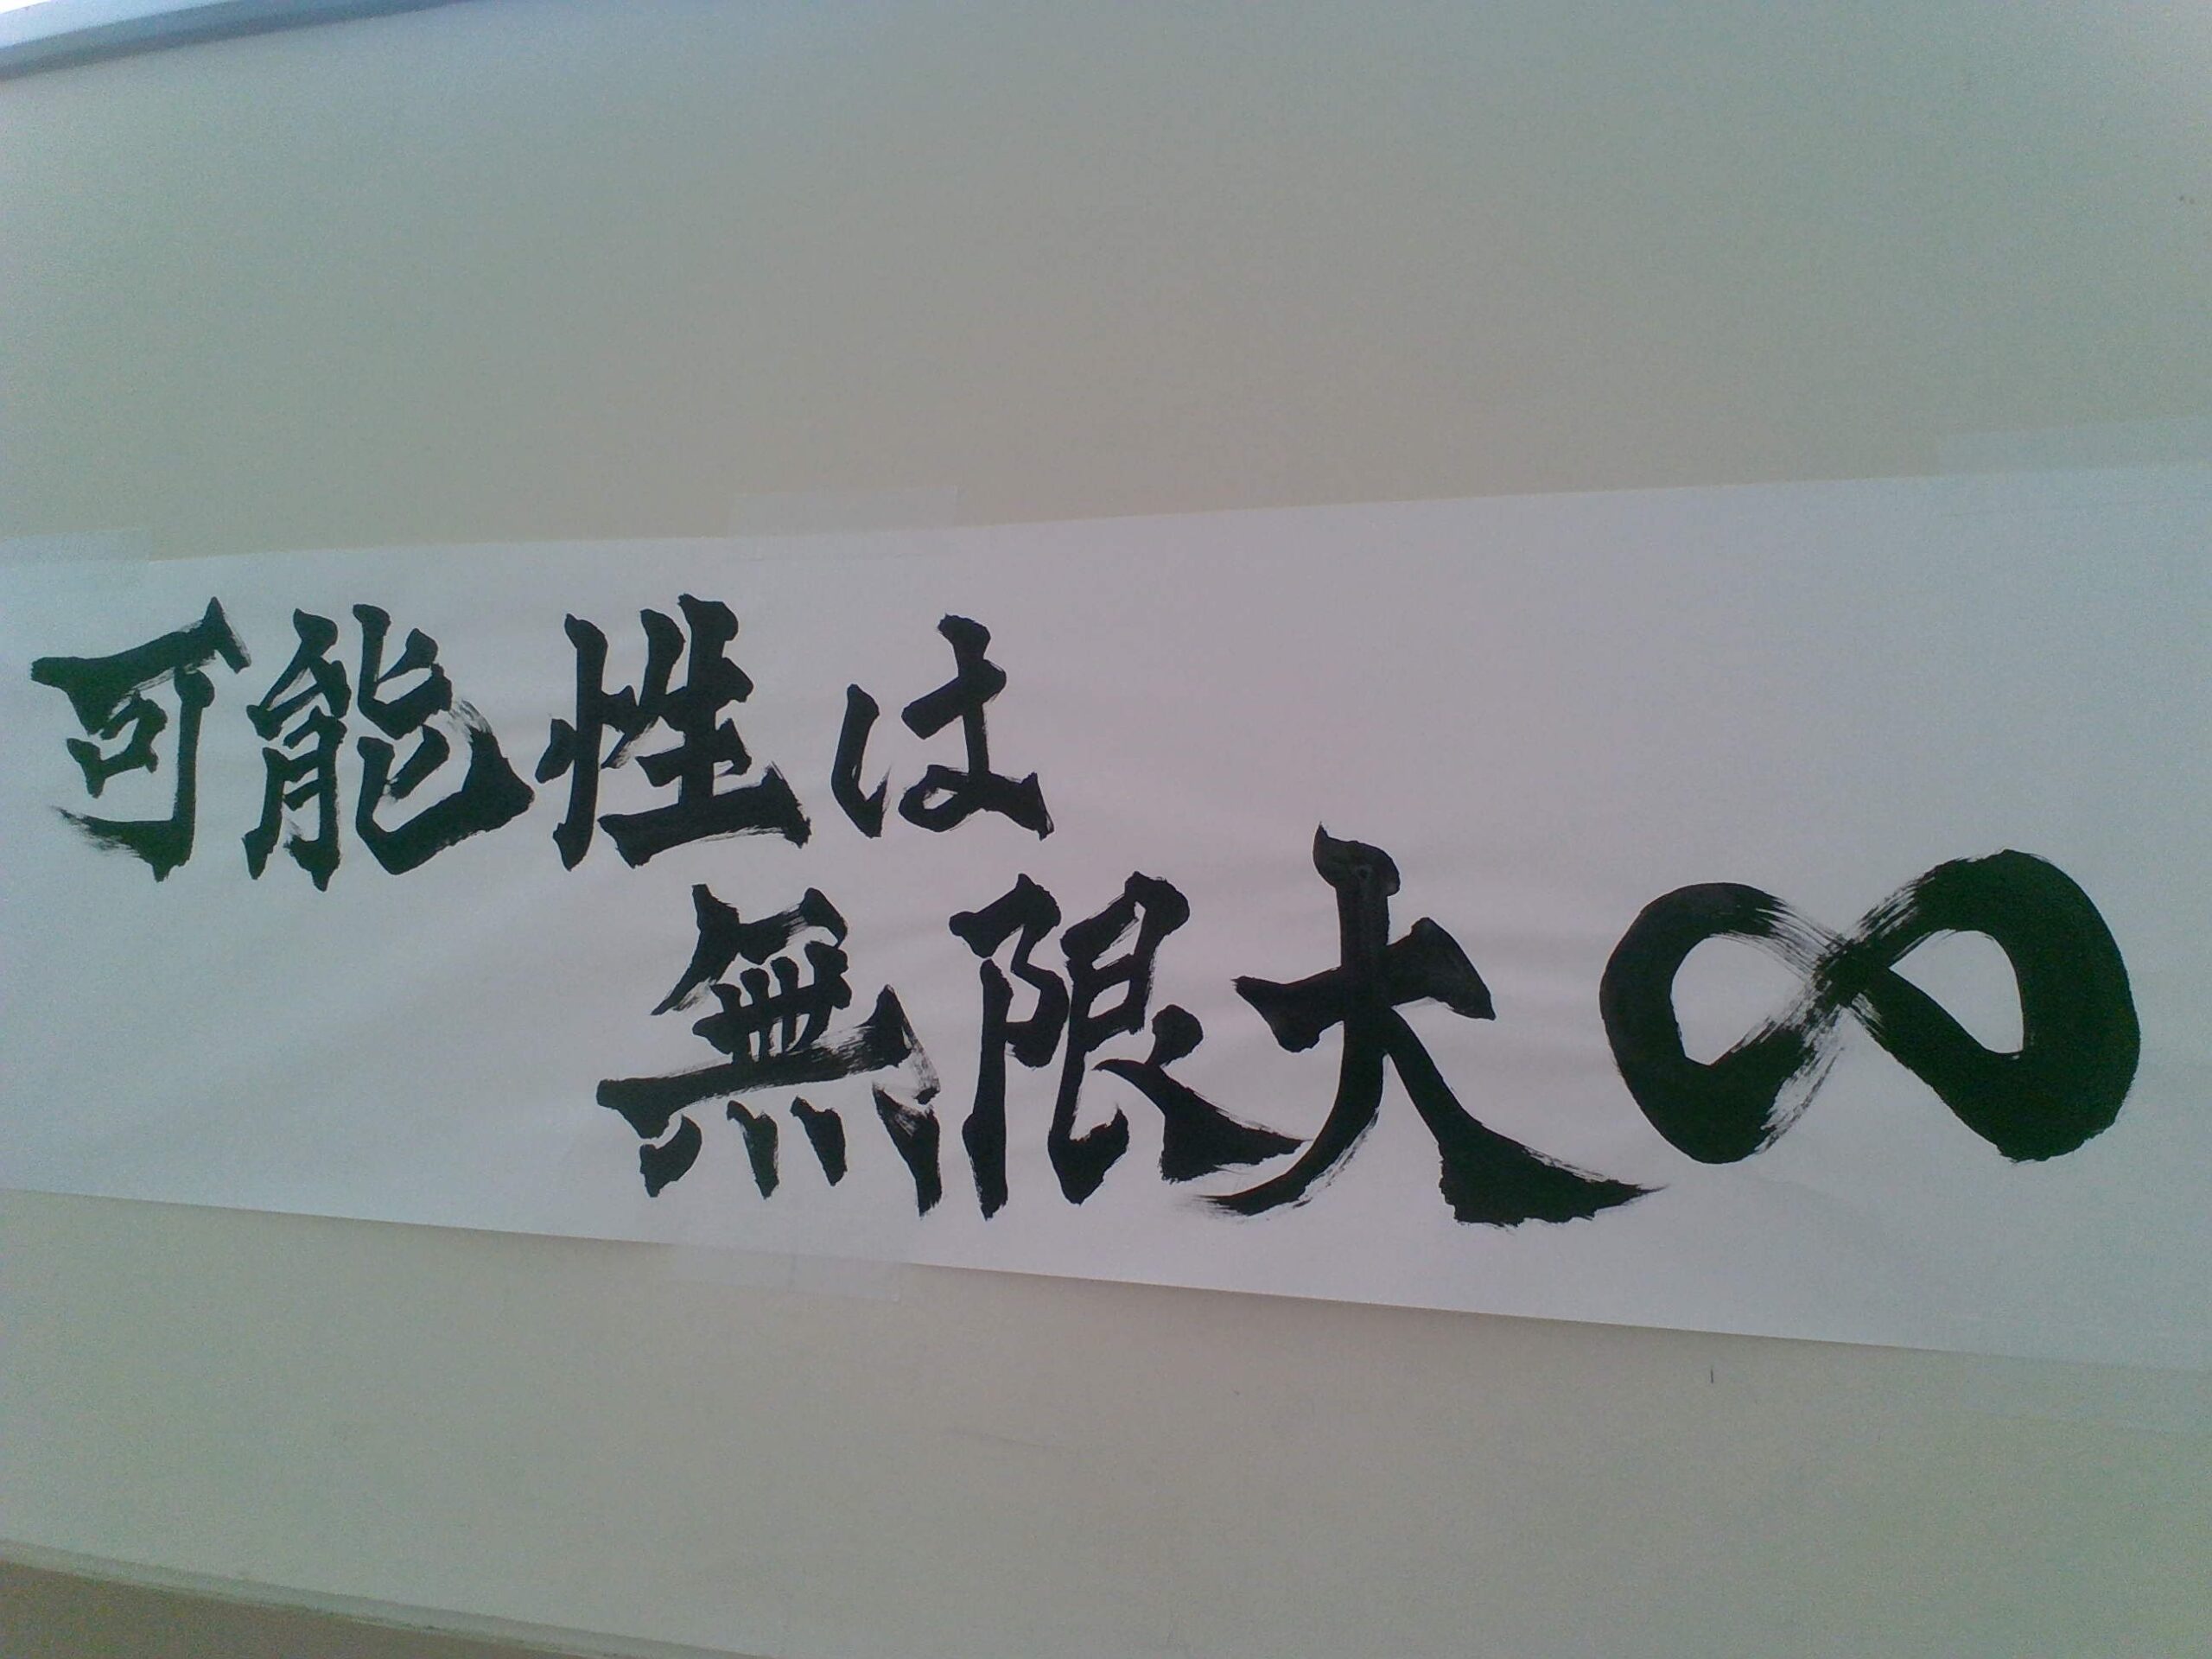 可能性は
無限大∞